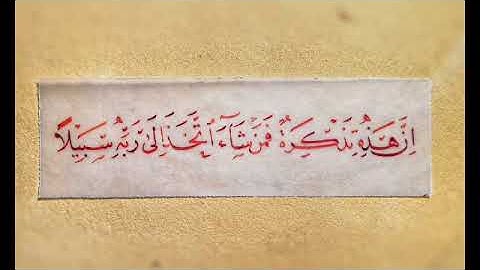 اِنَّ هَذِهِ تَذْكِرَةٌ فَمَنْ شَاءَ اتَّخَذَ اِلَى رَبِّهِ سَبِيلًا